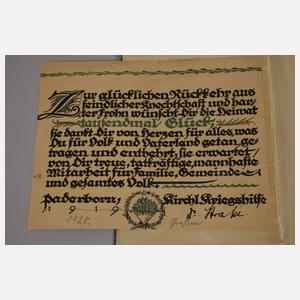 Zur glücklichen Rückkehr aus
feindlicher Knechtschaft und har-
ter Frohn wünscht Dir die Heimat
tausendmal Glück,
sie dankt Dir von Herzen für alles, was
Du für Volk und Vaterland getan, ge-
tragen und entbehrt, sie erwartet
von Dir treue, tatkräftige, mannhafte
Mitarbeit für Familie, Gemeinde
und gesamtes Volk.
Paderborn, Kirchl. Kriegshilfe
1919
1920.